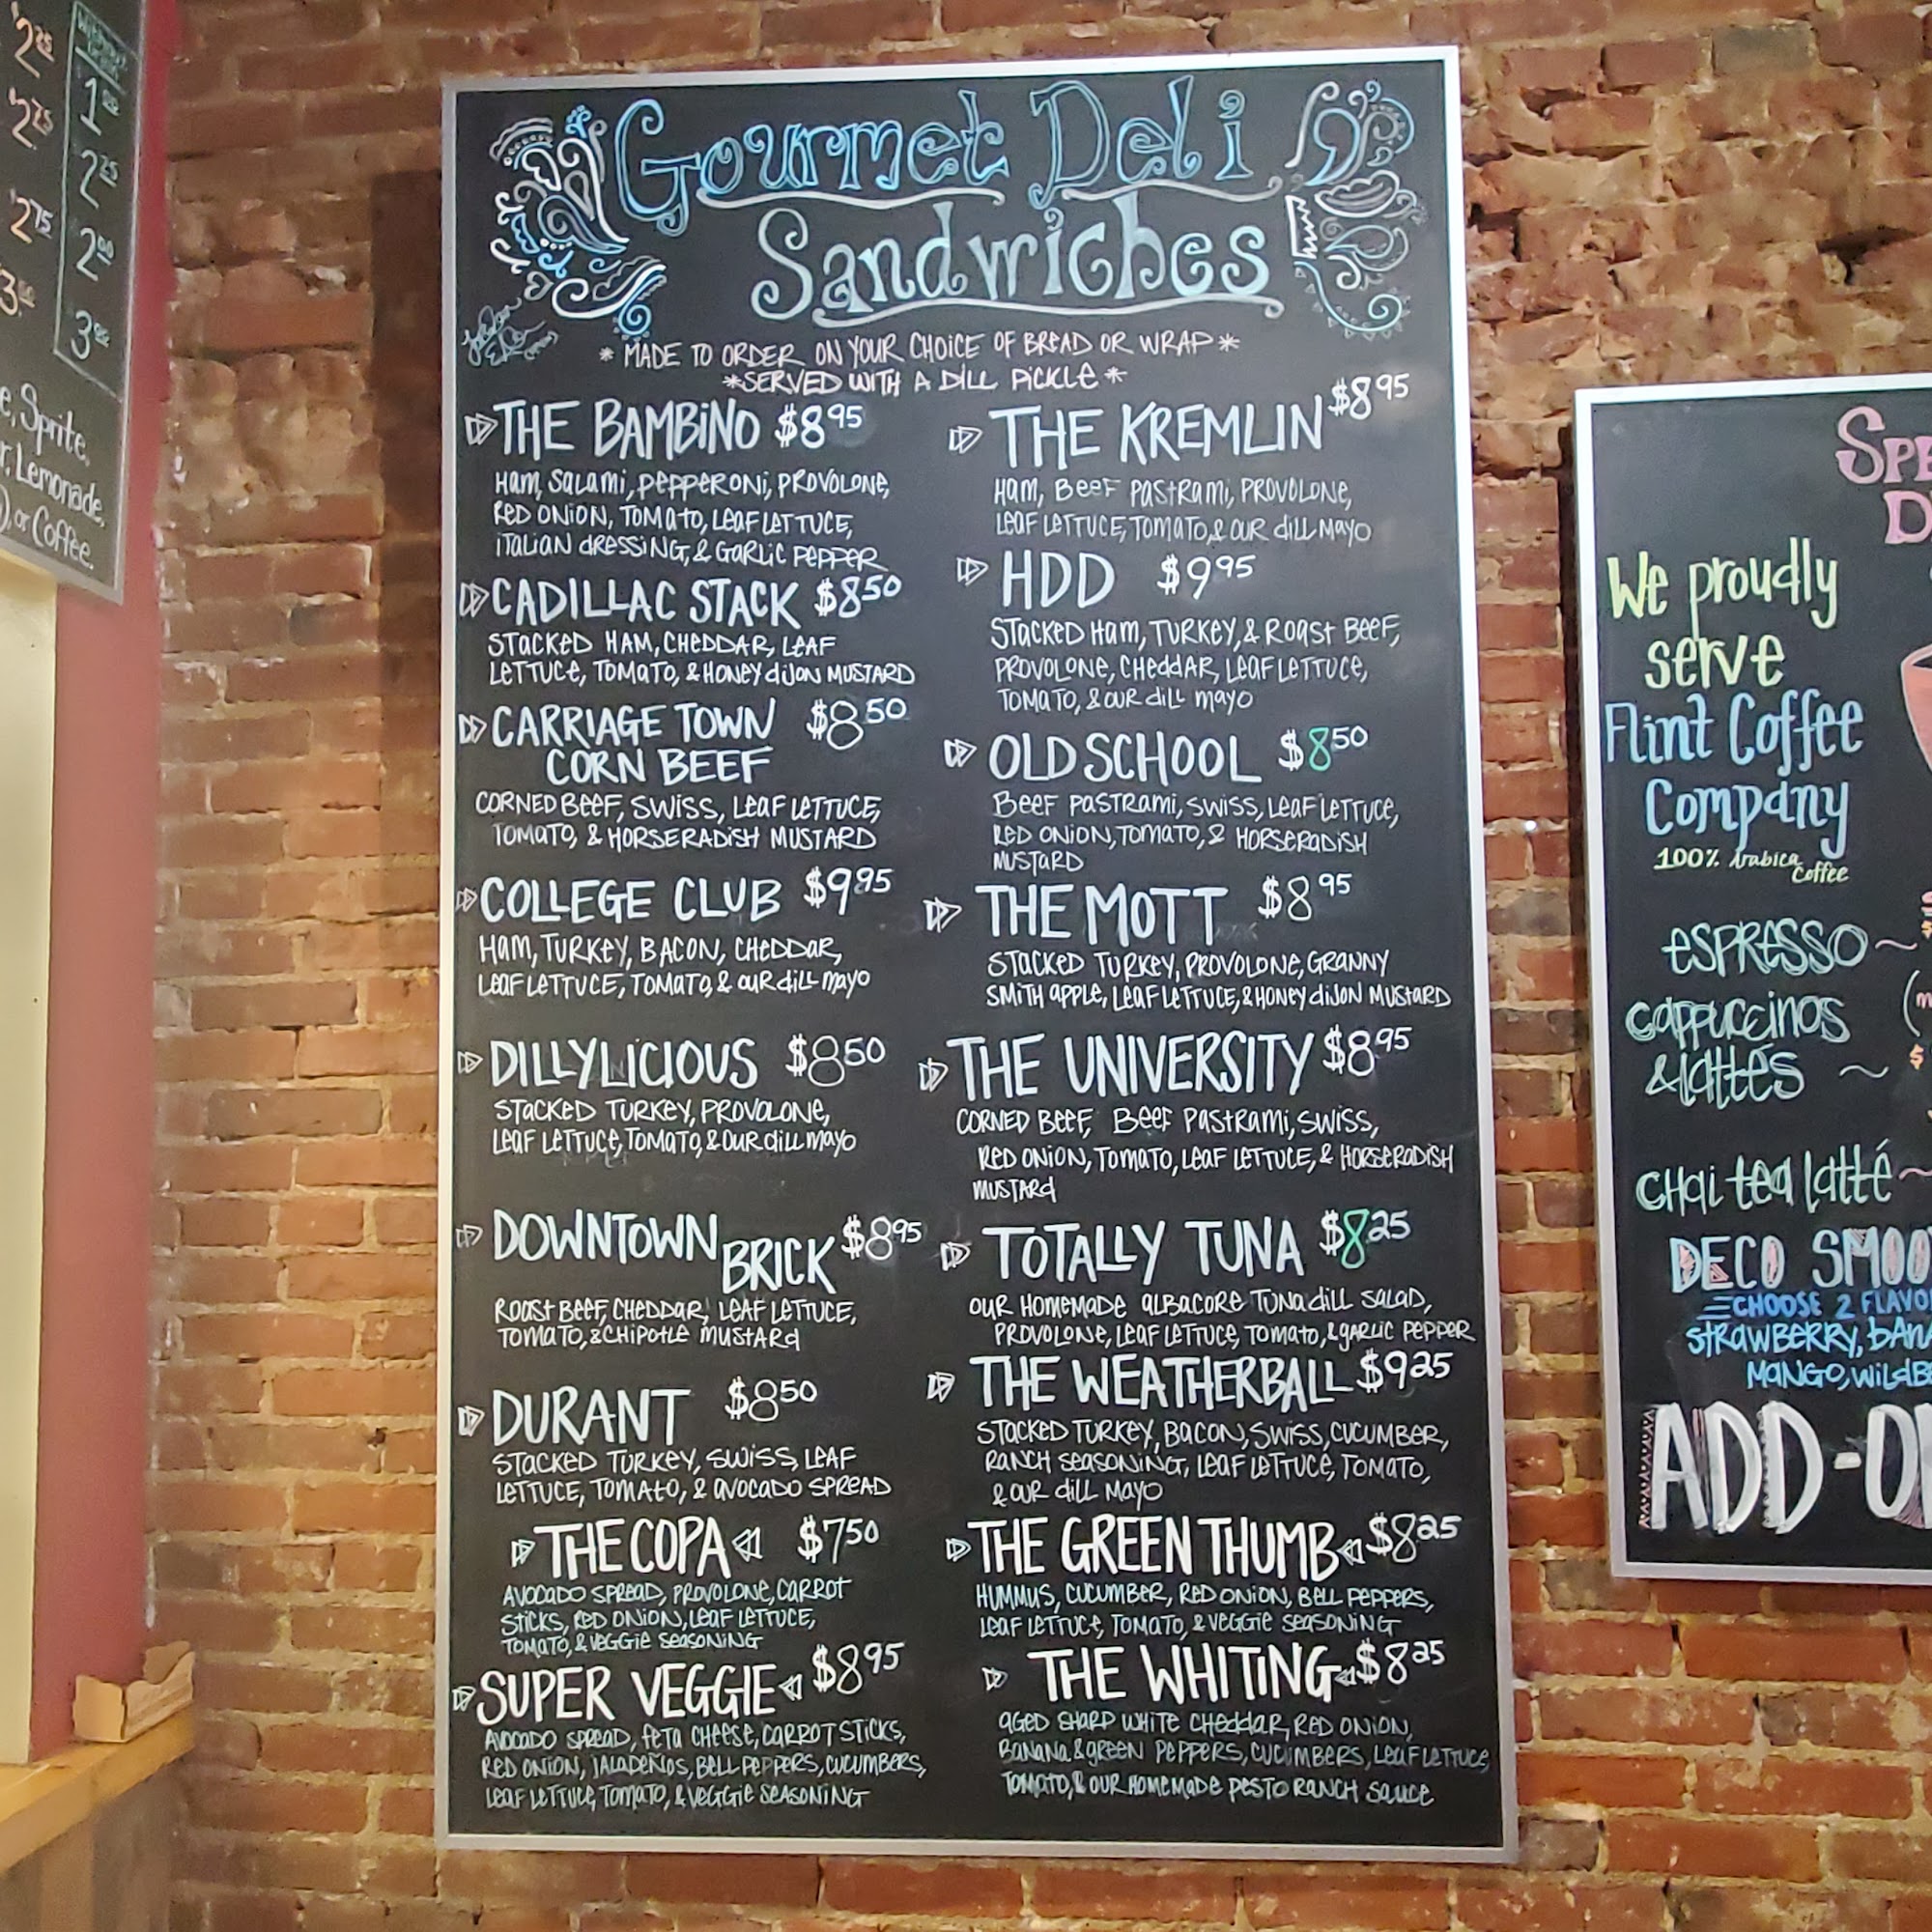 $2.25
$2.75
$2.75
1
2.25
2.00
3
e, Sprite,
r, Lemonade,
), or Coffee.
Gourmet Deli
Sandwiches
* MADE TO ORDER ON YOUR CHOICE OF BREAD OR WRAP *
*SERVED WITH A DILL PICKLE *
THE BAMBINO $8.95
HAM, SALAMI, PEPPERONI, PROVOLONE,
RED ONION, TOMATO, LEAF LETTUCE,
ITALIAN DRESSING, & GARLIC PEPPER
CADILLAC STACK $8.50
STACKED HAM, CHEDDAR, LEAF
LETTUCE, TOMATO, & HONEY DIJON MUSTARD
CARRIAGE TOWN $8.50
CORN BEEF
CORNED BEEF, SWISS, LEAF LETTUCE,
TOMATO, & HORSERADISH MUSTARD
COLLEGE CLUB $9.95
HAM, TURKEY, BACON, CHEDDAR,
LEAF LETTUCE, TOMATO, & OUR DILL MAYO
DILLYLICIOUS $8.50
STACKED TURKEY, PROVOLONE,
LEAF LETTUCE, TOMATO, & OUR DILL MAYO
DOWNTOWN BRICK $8.95
ROAST BEEF, CHEDDAR, LEAF LETTUCE,
TOMATO, & CHIPOTLE MUSTARD
DURANT $8.50
STACKED TURKEY, SWISS, LEAF
LETTUCE, TOMATO, & AVOCADO SPREAD
THE COPA $7.50
AVOCADO SPREAD, PROVOLONE, CARROT
STICKS, RED ONION, LEAF LETTUCE,
TOMATO, & VEGGIE SEASONING
SUPER VEGGIE $8.95
AVOCADO SPREAD, FETA CHEESE, CARROT STICKS,
RED ONION, JALAPEÑOS, BELL PEPPERS, CUCUMBERS,
LEAF LETTUCE, TOMATO, & VEGGIE SEASONING
THE KREMLIN $8.95
HAM, BEEF PASTRAMI, PROVOLONE,
LEAF LETTUCE, TOMATO, & OUR DILL MAYO
HDD $9.95
STACKED HAM, TURKEY, & ROAST BEEF,
PROVOLONE, CHEDDAR, LEAF LETTUCE,
TOMATO, & OUR DILL MAYO
OLD SCHOOL $8.50
BEEF PASTRAMI, SWISS, LEAF LETTUCE,
RED ONION, TOMATO, & HORSERADISH
MUSTARD
THE MOTT $8.95
STACKED TURKEY, PROVOLONE, GRANNY
SMITH APPLE, LEAF LETTUCE, & HONEY DIJON MUSTARD
THE UNIVERSITY $8.95
CORNED BEEF, BEEF PASTRAMI, SWISS,
RED ONION, TOMATO, LEAF LETTUCE, & HORSERADISH
MUSTARD
TOTALLY TUNA $8.25
OUR HOMEMADE ALBACORE TUNA DILL SALAD,
PROVOLONE, LEAF LETTUCE, TOMATO, & GARLIC PEPPER
THE WEATHERBALL $9.25
STACKED TURKEY, BACON, SWISS, CUCUMBER,
RANCH SEASONING, LEAF LETTUCE, TOMATO,
& OUR DILL MAYO
THE GREEN THUMB $8.25
HUMMUS, CUCUMBER, RED ONION, BELL PEPPERS,
LEAF LETTUCE, TOMATO, & VEGGIE SEASONING
THE WHITING $8.25
AGED SHARP WHITE CHEDDAR, RED ONION,
BANANA & GREEN PEPPERS, CUCUMBERS, LEAF LETTUCE
TOMATO, & OUR HOMEMADE PESTO RANCH SAUCE
SPE
D
We proudly
serve
Flint Coffee
Company
100% Arabica
Coffee
ESPRESSO ~
cappuccinos
& lattés ~
chai tea latté ~
DECO SMOO
CHOOSE 2 FLAVO
STRAWBERRY, BAN
MANGO, WILDB
ADD-O